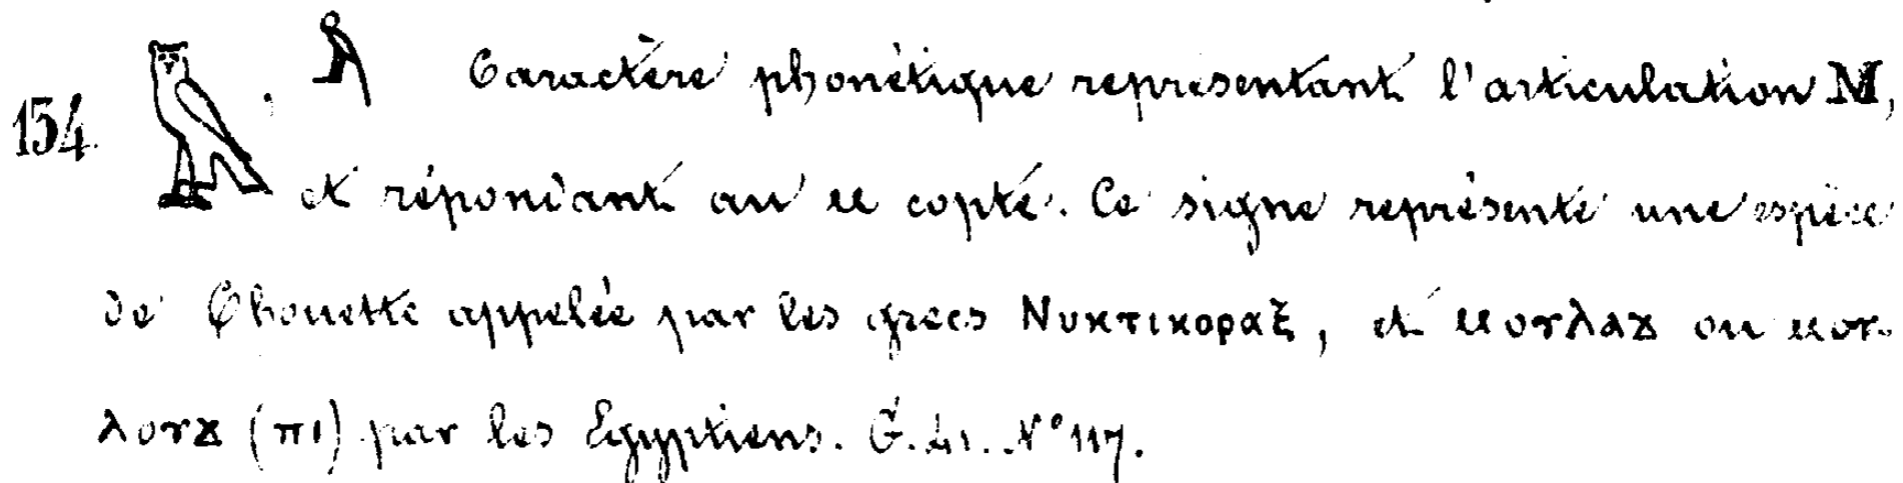 154. 𓅓, Caractère phonétique représentant l'articulation M,
et répondant au ⲙ copte. Ce signe représente une espèce
de Chouette appelée par les grecs Νυκτικοραξ, et ⲙⲟⲩⲗⲁϫ ou ⲙⲟⲩ-
ⲗⲟⲩϫ (ⲡⲓ) par les Egyptiens. G. 41. N° 117.